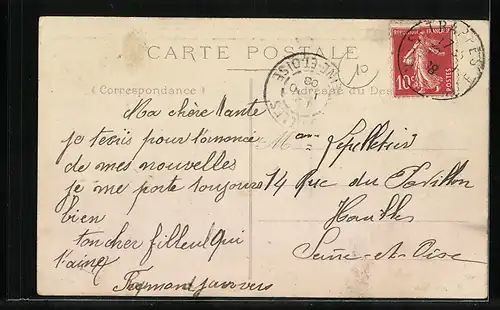 CARTE POSTALE
(Correspondance)
Adresse du Des
Ma chère tante
je técris pour t'anoncé
de mes nouvelles
je me porte toujours
bien
ton cher filleul qui
t'aime
Mme Lepelletier
14 Rue du Pavillon
Houilles
Seine-et-Oise
REPUBLIQUE FRANÇAISE
10c
POSTES